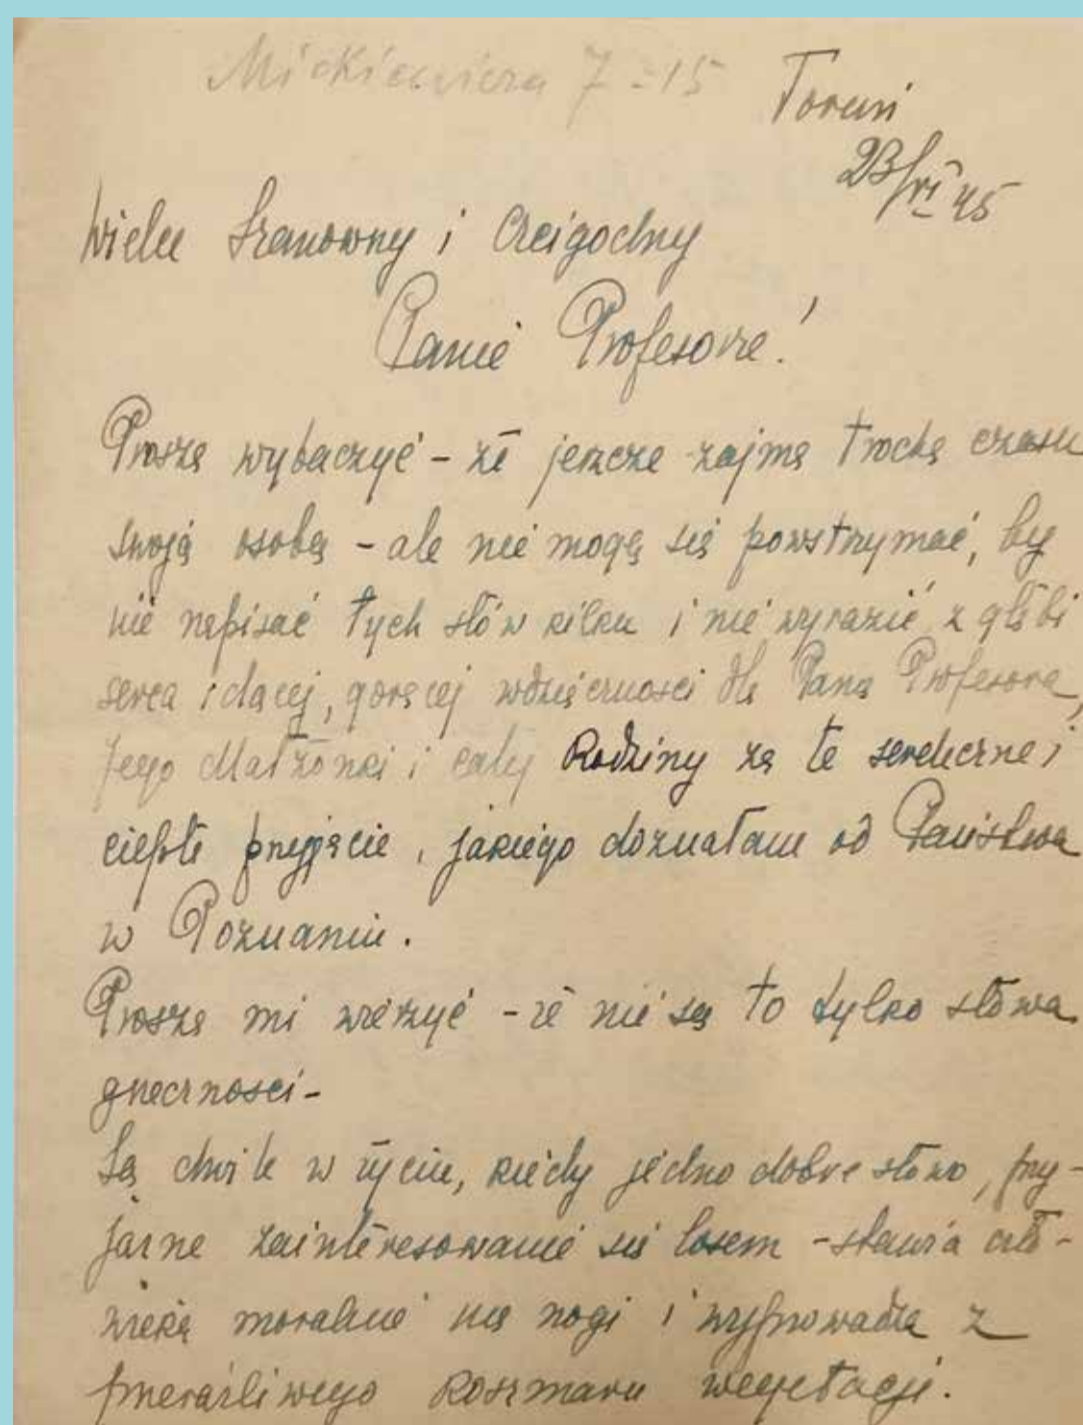 Mickiewicza 7-15
Toruń
23/VI 45
Wielce Szanowny i Czcigodny
Panie Profesorze!
Proszę wybaczyć - że jeszcze zajmę trochę czasu
swoją osobą - ale nie mogę się powstrzymać, by
nie napisać tych słów kilku i nie wyrazić z głębi
serca idącej, gorącej wdzięczności dla Pana Profesora,
Jego Małżonki i całej Rodziny za te serdeczne i
ciepłe przyjęcie, jakiego doznałam od Państwa
w Poznaniu.
Proszę mi wierzyć - że nie są to tylko słowa
grzeczności -
Są chwile w życiu, kiedy jedno dobre słowo, przy-
jazne zainteresowanie się losem - stawia czło-
wieka moralnie na nogi i wyprowadza z
przeraźliwego koszmaru wegetacji.